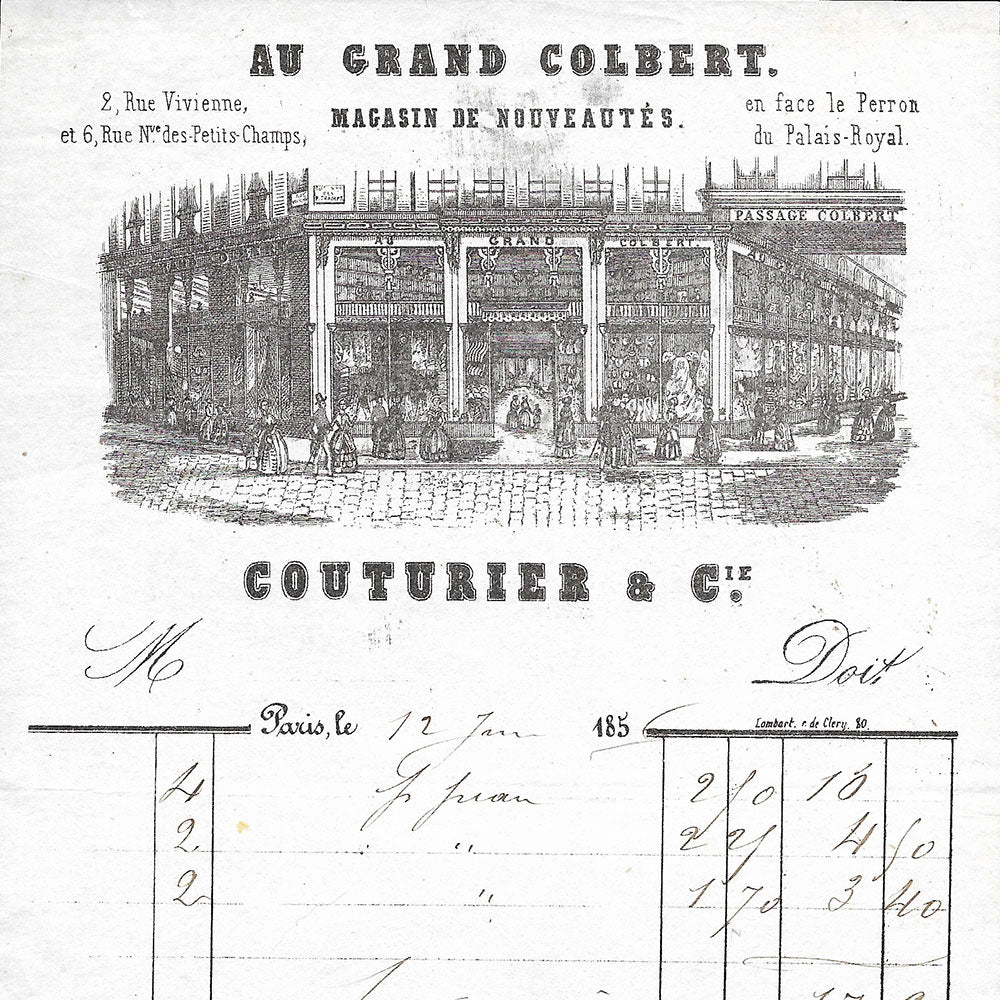 AU GRAND COLBERT.
2, Rue Vivienne,
et 6, Rue Nve des-Petits-Champs,
MAGASIN DE NOUVEAUTÉS.
en face le Perron
du Palais-Royal.
PASSAGE COLBERT
AU GRAND COLBERT.
AU
COUTURIER & CIE.
M
Doit,
Paris, le 12 1856
Lombart, r. de Clery, 80.
4 2 50 10
2 " 2 25 4 50
2 " 1 70 3 40
17